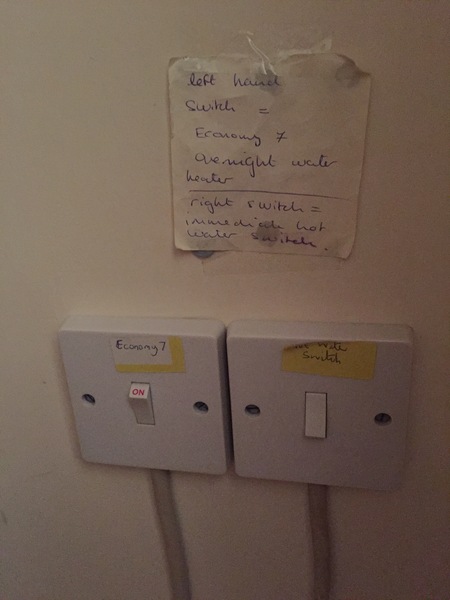 left hand
Switch =
Economy 7
Overnight water
heater
right switch =
immediate hot
water switch.
Economy 7
ON
Water
Switch